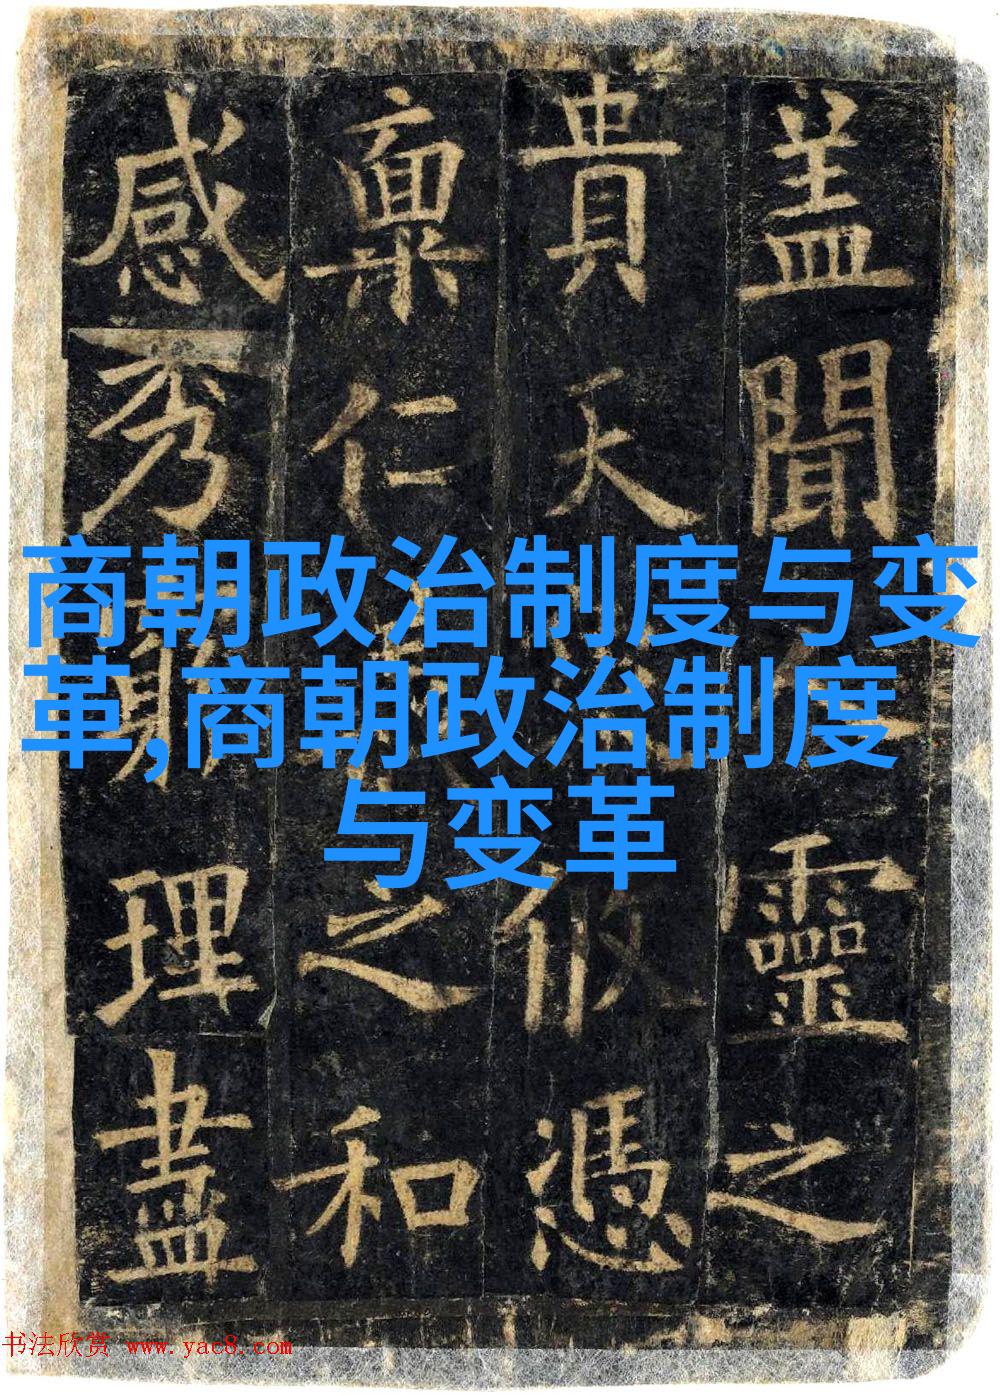 盖聞靈之
貴天攸憑
稟仁之和
感秀理盡
商朝政治制度与变
革,商朝政治制度
与变革
书法欣赏 www.yac8.com